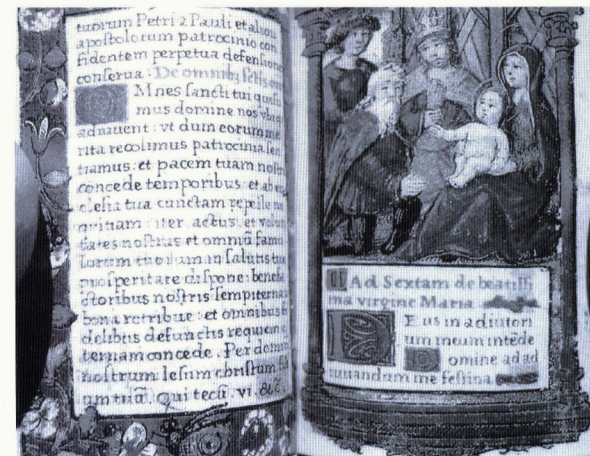 tuorum Petri 2 Pauli et aliorū
apostolorum patrocinio con
fidentem perpetua defensione
conserua. De omnibus sctis
Mnes sancti tui quesu
mus domine nos vbi
adiuuent: vt dum eorum me
rita recolimus patrocinia sen
tiamus: et pacem tuam nostris
concede temporibus: et ab ec
clesia tua cunctam repelle ne
quitiam: iter actus et volun
tates nostras et omniū famu
lorum tuorum in salutis tue
prosperitate dispone: benefa
ctoribus nostris sempiterna
bona retribue: et omnibus fi
delibus defunctis requiem e
ternam concede. Per dominum
nostrum Iesum christum fili
um tuū. Qui tecū. vi. &c.
Ad Sextam de beatissi
ma virgine Maria
Eus in adiutori
um meum intēde
Domine ad ad
iuuandum me festina